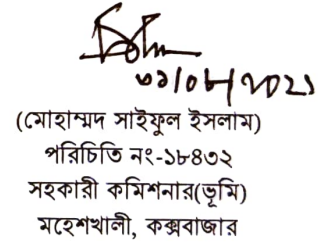 ০১/০৮/২০২১
(মোহাম্মদ সাইফুল ইসলাম)
পরিচিতি নং-১৮৪৩২
সহকারী কমিশনার(ভূমি)
মহেশখালী, কক্সবাজার